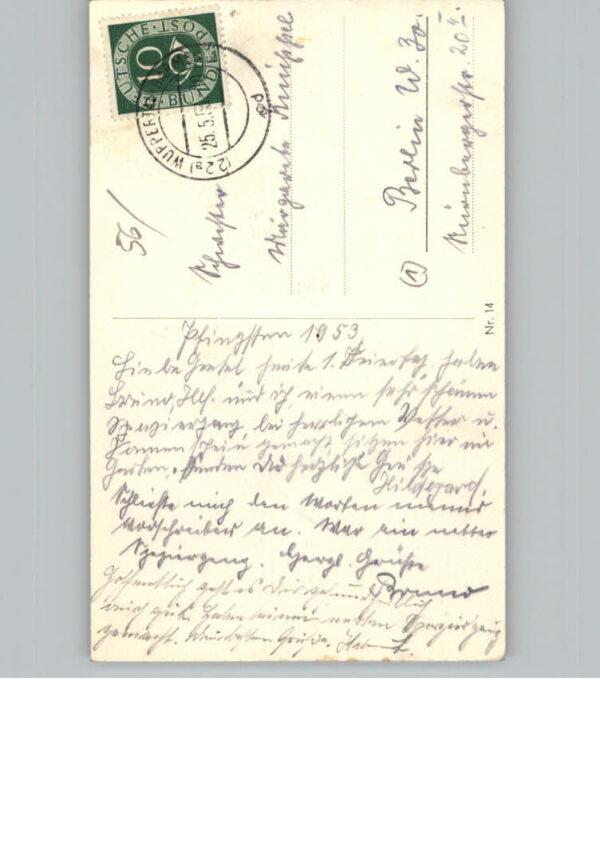 DEUTSCHE BUNDESPOST
10
(22a) WUPPERTAL
25.5.53
56/
Schwester
Margarete
Berlin W. 30.
Nürnbergerstr. 20 II.
(1)
Nr. 14
Pfingsten 1953
Liebe Gretel heute 1. Feiertag, haben
Bruno, und ich, einen sehr schönen
Spaziergang bei herrlichem Wetter u.
Sonnenschein gemacht, sitzen hier im
Garten, senden Dir herzliche Grüße
Hildegard.
Schließe mich den Worten meines
Vorschreibers an. War ein netter
Spaziergang. Herzl. Grüße
Bruno
Hoffentlich geht es Dir gesundheitlich
auch gut. Haben einen netten Spaziergang
gemacht. Die besten Grüße.